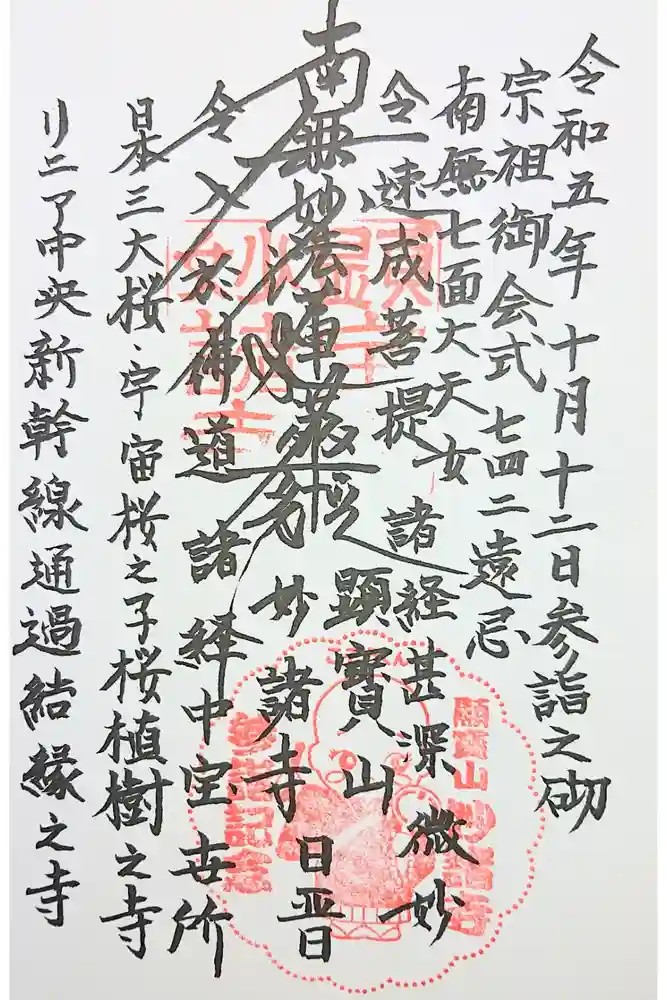 令和五年十月十二日参詣之砌
宗祖御会式七四二遠忌
南無七面大天女
令速成菩提 諸経甚深微妙
南無妙法蓮華経
顕寶山
妙諸寺 日晋
令入於佛道 諸経中宝世所
日本三大桜・宇宙桜之子桜植樹之寺
リニア中央新幹線通過結縁之寺
顕寶山
妙諸寺
参詣記念